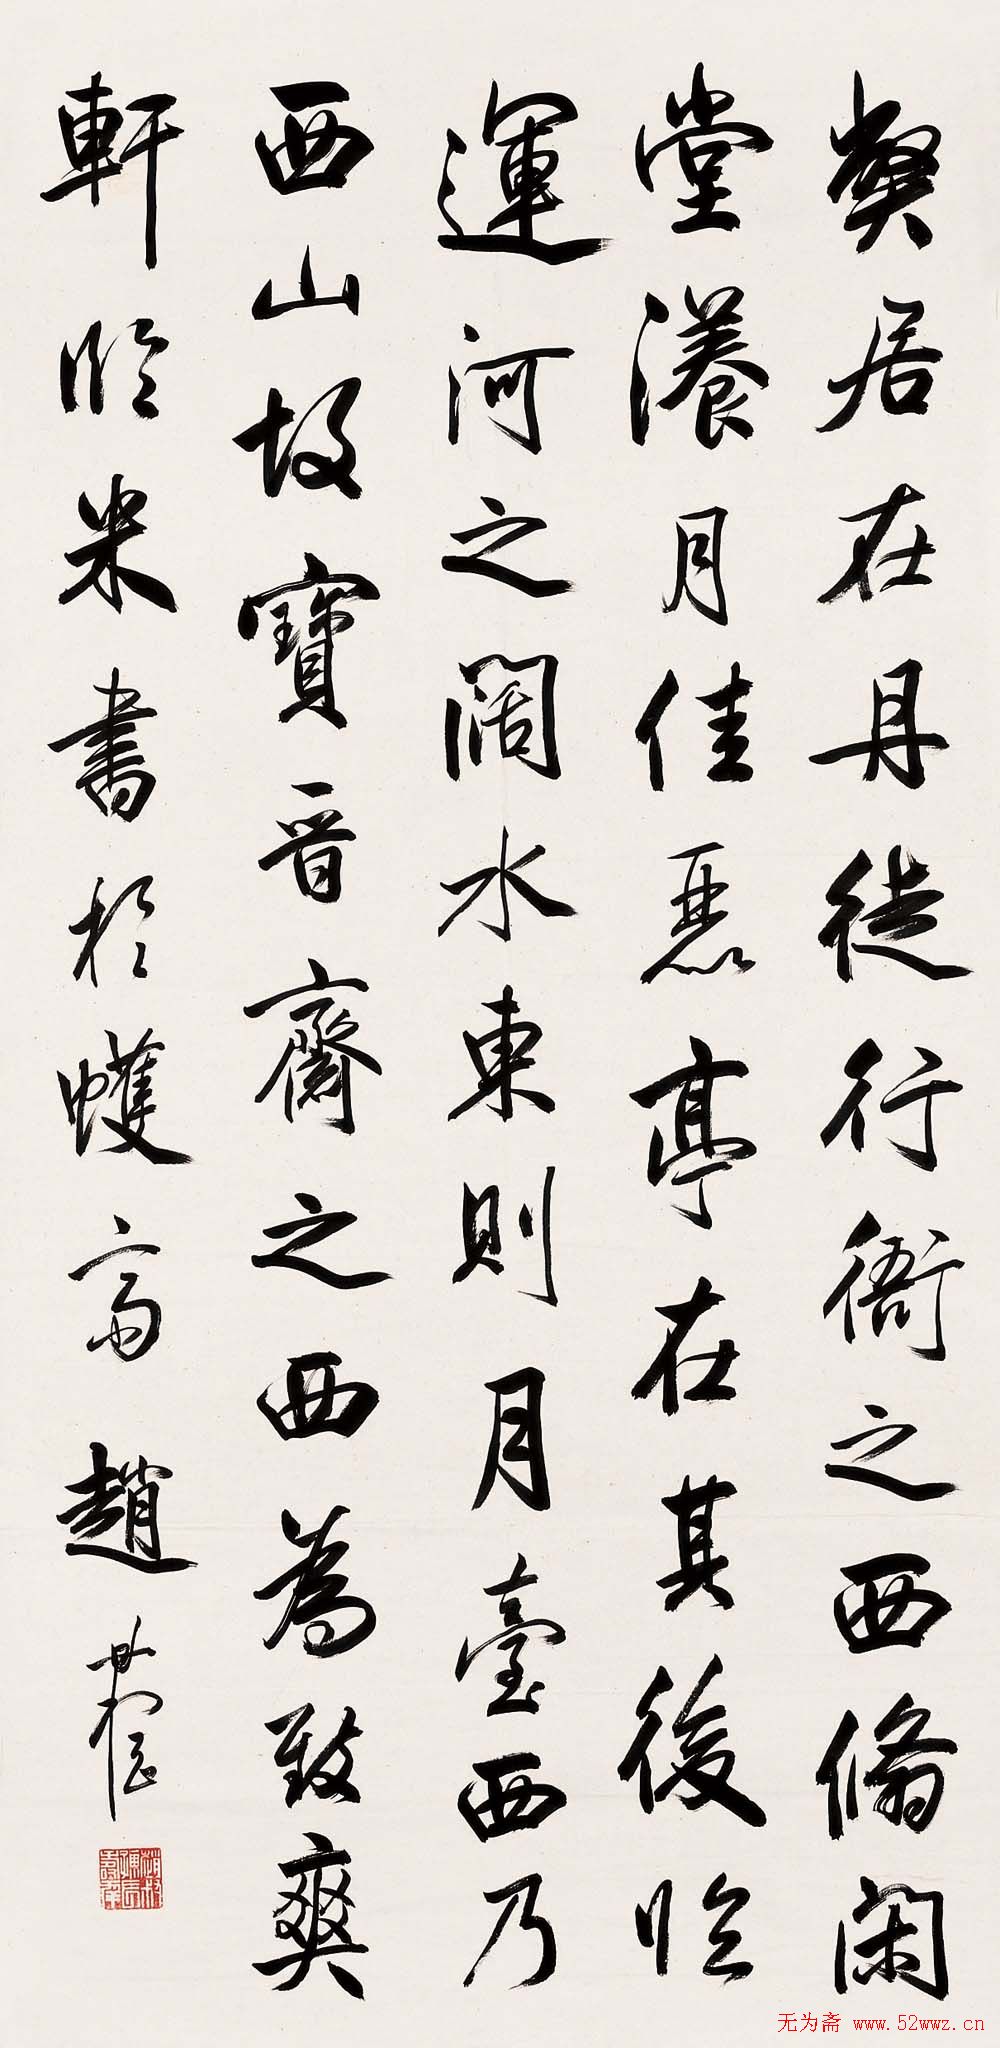 獘居在丹徒行衙之西翛閑
堂漾月佳麗亭在其後臨
運河之闊水東則月臺西乃
西山故寶晉齋之西為致爽
軒臨米書於蠖 趙
无为斋 www.52wwz.cn